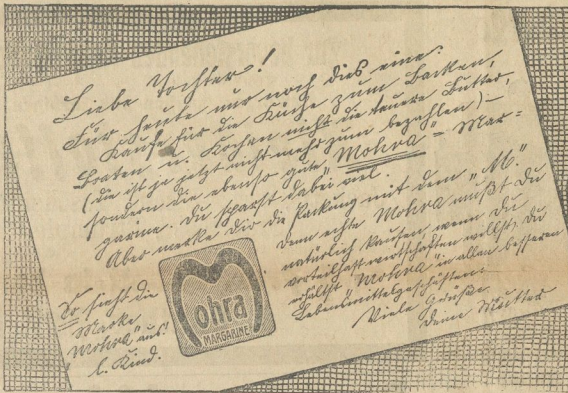 Liebe Tochter!
Für heute nur noch dies eine:
Kaufe für die Küche zum Backen,
Braten u. Kochen nicht die teuere Butter,
(die ist ja jetzt nicht mehr zum bezahlen) –
sondern die ebenso gute „Mohra“ = Mar=
garine. Du sparst dabei viel.
Aber merke Dir die Packung mit dem „M.“
Denn echte Mohra mußt Du
natürlich kaufen, wenn Du
vorteilhaft wirtschaften willst. Du
erhältst „Mohra“ in allen besseren
Lebensmittelgeschäften.
Viele Grüße
Deine Mutter
So sieht die
Marke
„Mohra“ aus!
l. Kind.
Mohra
MARGARINE